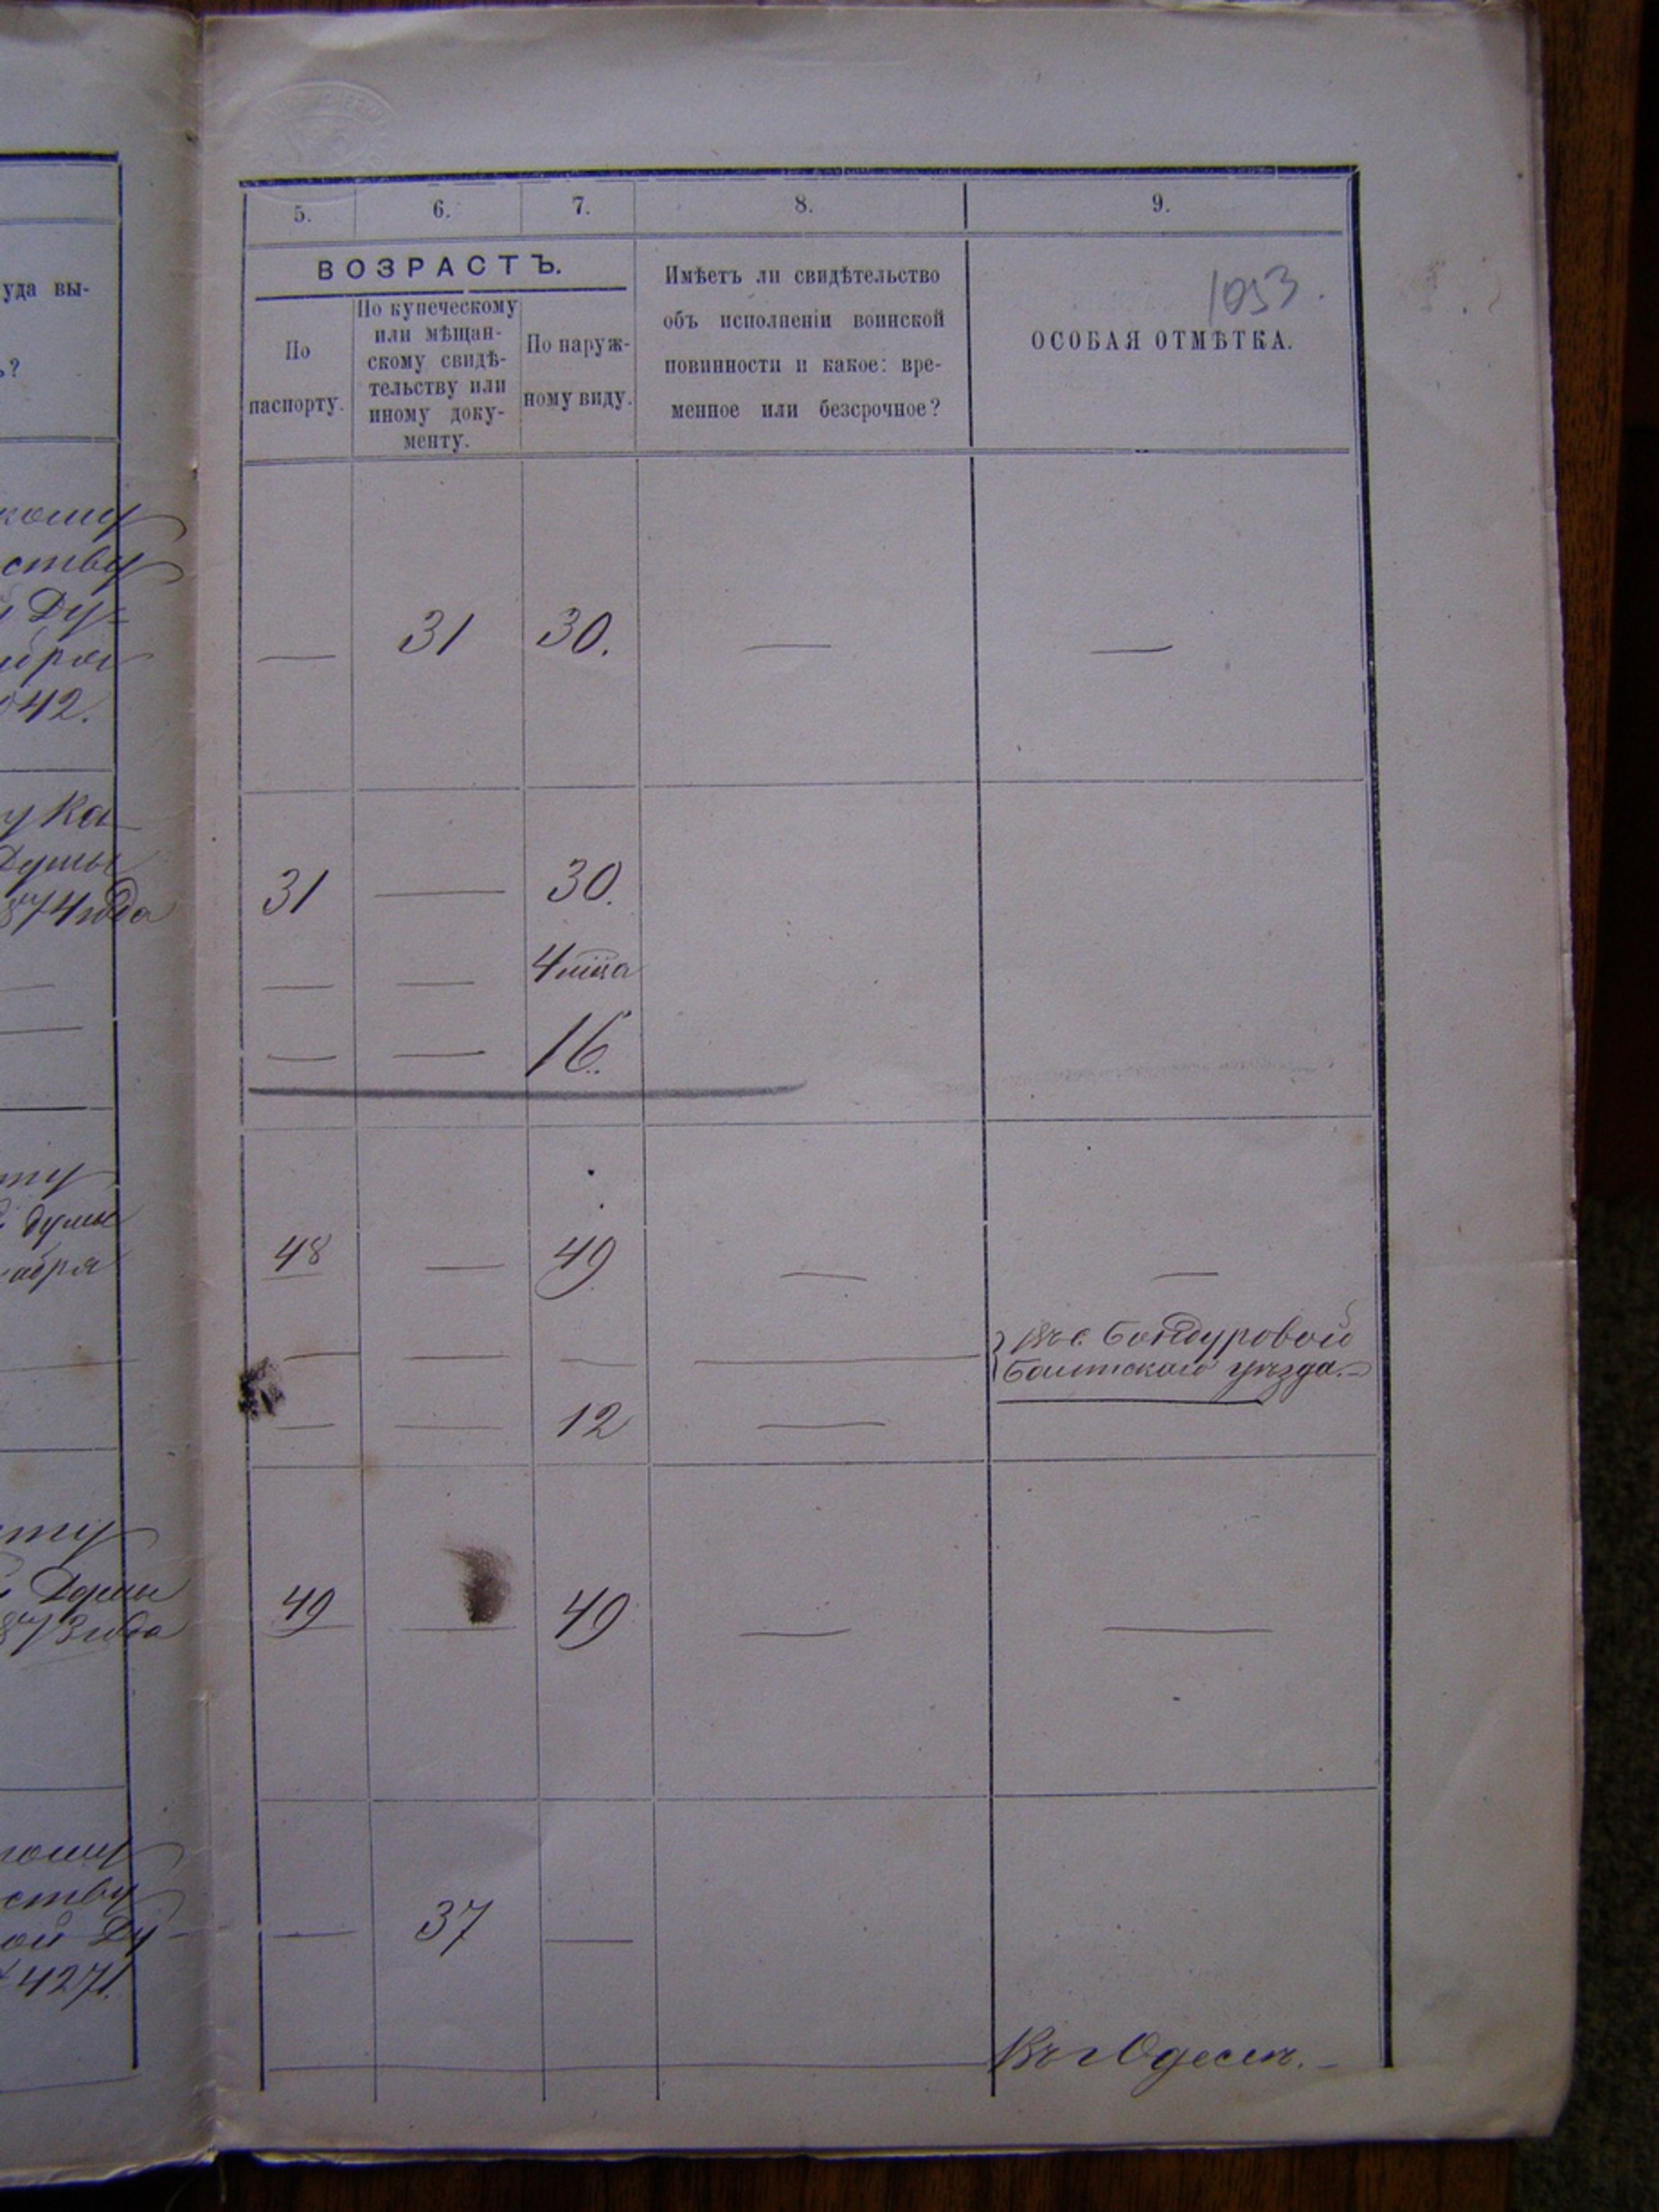 уда вы-
ь?
кому
ству
й Ду-
ября
042.
у Ка-
Думы
874 года
ту
й думы
кабря
ту
й Думы
873 года
кому
ству
ой Ду-
4271.
5. 6. 7. 8. 9.
ВОЗРАСТЪ.
По
паспорту.
По купеческому
или мѣщан-
скому свидѣ-
тельству или
иному доку-
менту.
По наруж-
ному виду.
Имѣетъ ли свидѣтельство
объ исполненіи воинской
повинности и какое: вре-
менное или безсрочное?
1053.
ОСОБАЯ ОТМѢТКА.
— 31 30. — —
31 — 30.
— — 4 мца
— — 16.
48 — 49 — —
— — — — Въ с. Бондуровой
Балтскаго уѣзда.
— — 12 —
49 — 49 — —
— 37 —
Въ г Одессѣ.